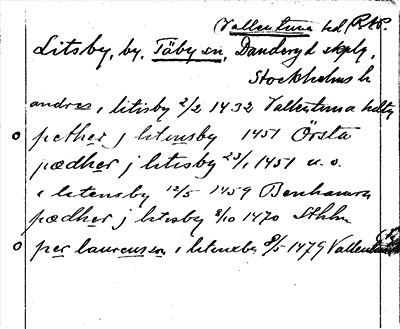 Vallentuna hd, R.A.P.
Litsby, by, Täby sn, Danderyd skplg,
Stockholms l
andres, litisby 2/2 1432 Vallentuna hdtg
pether j litinsby 1451 Örsta
pædher j litisby 23/1 1451 u. o.
i litensby 12/5 1459 Benhamra
pædher j litisby 8/10 1470 Sthlm
per laurensson, i litinxby 8/5 1479 Vallentuna